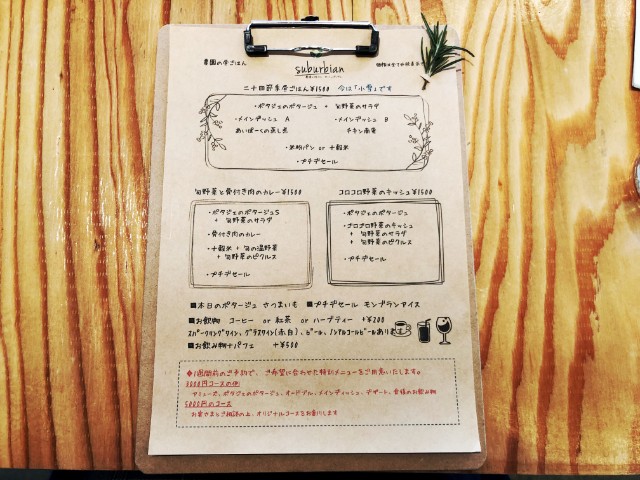 農園の季ごはん
suburbian
価格は全て税込表示
二十四節季ごはん¥1500 今は「小雪」です
・ポタジェのポタージュ + 旬野菜のサラダ
・メインディッシュ A ・メインディッシュ B
あいぽーくの蒸し煮 チキン南蛮
・米粉パン or 十穀米
・プチデセール
旬野菜と骨付き肉のカレー¥1500
・ポタジェのポタージュS
+ 旬野菜のサラダ
・骨付き肉のカレー
・十穀米 + 旬の温野菜
+ 旬野菜のピクルス
・プチデセール
コロコロ野菜のキッシュ¥1500
・ポタジェのポタージュ
・コロコロ野菜のキッシュ
+ 旬野菜のサラダ
+ 旬野菜のピクルス
・プチデセール
■本日のポタージュ さつまいも ■プチデセール モンブランアイス
■お飲物 コーヒー or 紅茶 or ハーブティー +¥200
スパークリングワイン、グラスワイン(赤白)、ビール、ノンアルコールビールあります
■お飲み物+パフェ +¥500
◆1週間前のご予約で、ご希望に合わせた特別メニューをご用意いたします。
3000円コースの例
アミューズ、ポタジェのポタージュ、オードブル、メインディッシュ、デザート、食後のお飲み物
5000円のコース
お客さまとご相談の上、オリジナルコースをお創りします